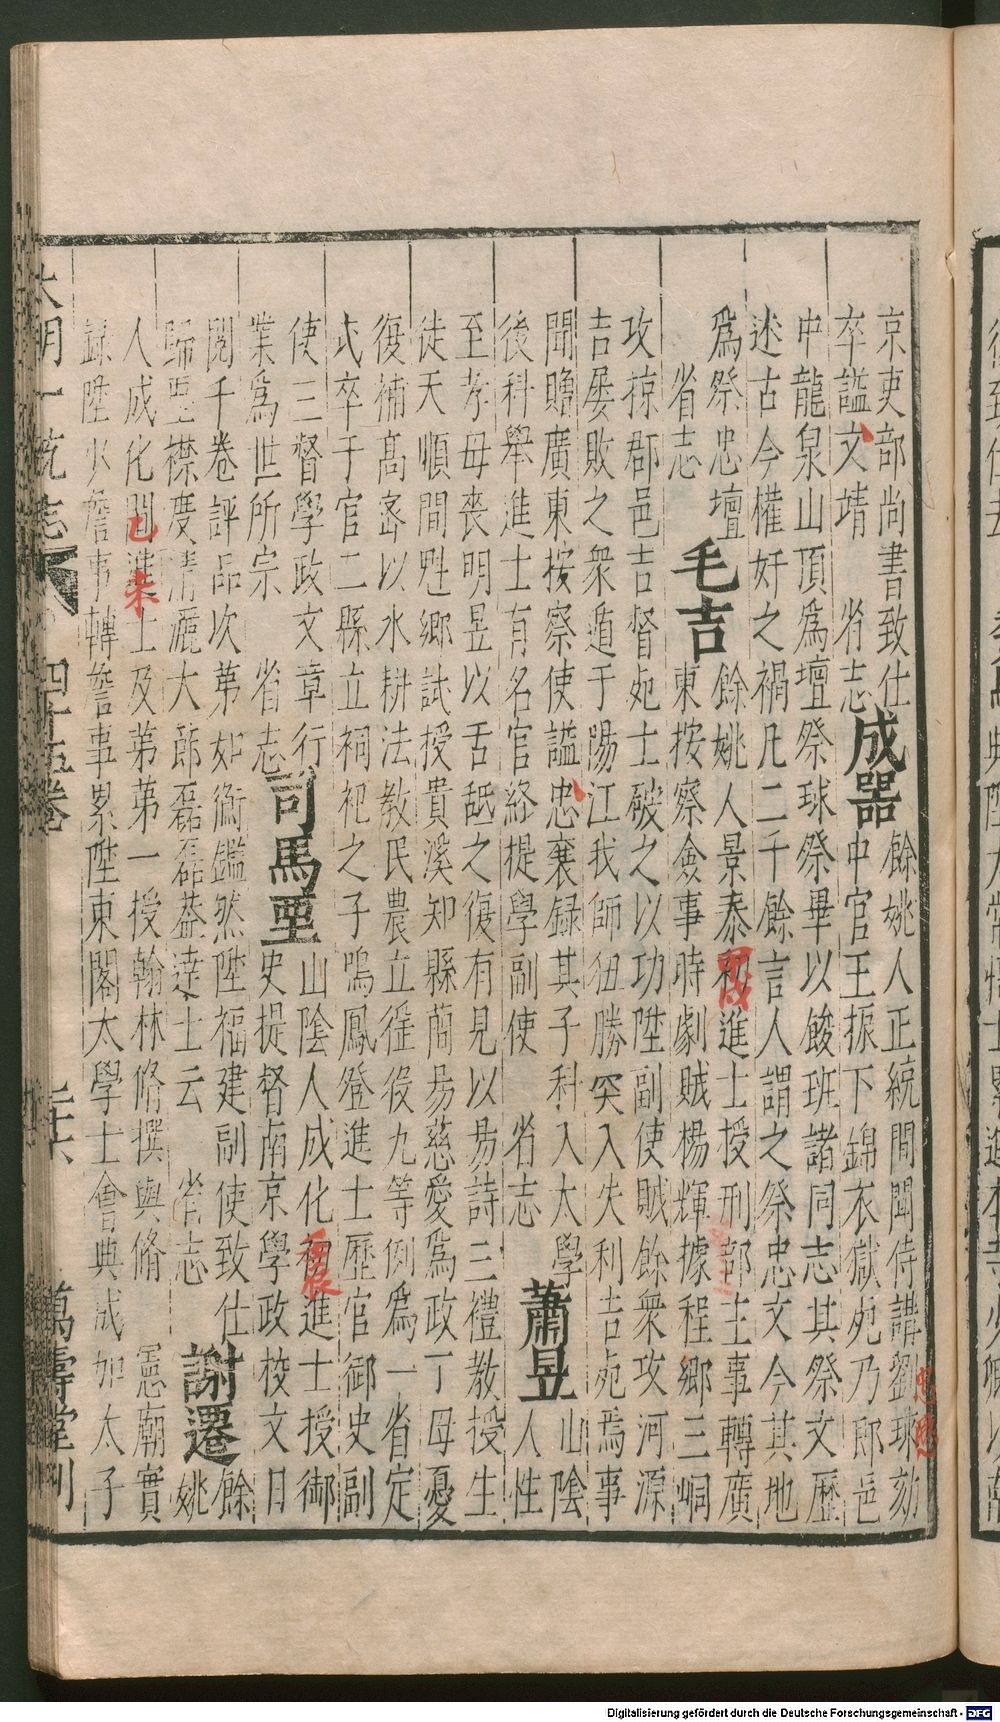 京吏部尚書致仕
卒謚文靖　省志
成器
餘姚人正統間聞侍講劉球劾
中官王振下錦衣獄死乃郎邑
中龍泉山頂爲壇祭球祭畢以餕班諸同志其祭文歷
述古今權奸之禍凡二千餘言人謂之祭忠文今其地
爲祭忠壇
省志
毛吉
餘姚人景泰初進士授刑部主事轉廣
東按察僉事時劇賊楊輝據程鄉三峒
攻掠郡邑吉督兵士破之以功陞副使賊餘衆攻河源
吉屡敗之衆遁于陽江我師狃勝突入失利吉死焉事
聞贈廣東按察使謚忠襄録其子科入太學
後科舉進士有名官終提學副使　省志
蕭昱
山陰
人性
至孝母喪明昱以舌舐之復有見以易詩三禮教授生
徒天順間魁鄉試授貴溪知縣蕳易慈愛爲政丁母憂
復補高密以水耕法教民農立徭役九等例爲一省定
式卒于官二縣立祠祀之子鳴鳳登進士歷官御史副
使三督學政文章行
業爲世所宗　省志
司馬垔
山陰人成化進士授御
史提督南京學政校文日
閱千卷評品次第如衡鑑然陞福建副使致仕
歸垔襟度清灑大節磊磊葢達士云　省志
謝遷
餘
姚
人成化間進士及第第一授翰林脩撰與脩憲廟實
録陞少詹事轉詹事累陞東閣太學士會典成加太子
大明一統志
四十五卷
三十六
萬壽堂刊
甲戌
丙辰
乙未
忠愍
Digitalisierung gefördert durch die Deutsche Forschungsgemeinschaft - DFG